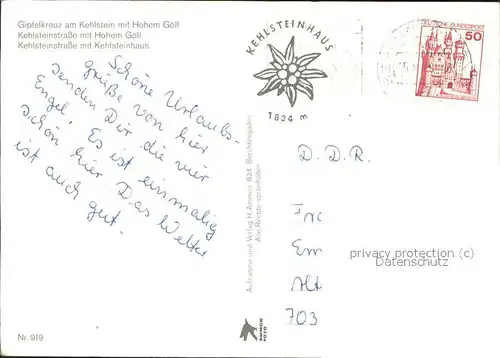 Gipfelkreuz am Kehlstein mit Hohem Göll
Kehlsteinstraße mit Hohem Göll
Kehlsteinstraße mit Kehlsteinhaus
KEHLSTEINHAUS
1834 m
DEUTSCHE BUNDESPOST
50
Schöne Urlaubs-
grüße von hier
senden Dir die vier
Engel. Es ist einmalig
schön hier Das Wetter
ist auch gut.
D.D.R.
Aufnahme und Verlag H. Ammon, 824 Berchtesgaden
Alle Rechte vorbehalten
privacy protection (c)
Datenschutz
Em
Alt
703
Nr. 919
AMMON
FOTO